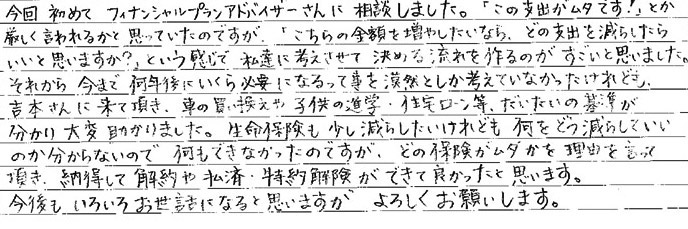 今回 初めて ファイナンシャルプランアドバイザーさんに 相談しました。「この支出がムダです!」とか
厳しく言われるかと思っていたのですが、「こちらの金額を増やしたいなら、どの支出を減らしたら
いいと思いますか?」という感じで 私達に考えさせて 決める流れを作るのが すごいと思いました。
それから 今まで 何年後にいくら必要になるって事を漠然としか考えていなかったけれども、
吉本さんに来て頂き、車の買い換えや 子供の進学・住宅ローン等、だいたいの基準が
分かり 大変 助かりました。生命保険も 少し減らしたいけれども 何をどう減らしていい
のか分からないので 何もできなかったのですが、どの保険がムダかを 理由を言って
頂き、納得して 解約や 払済・特約解除ができて良かったと思います。
今後も いろいろお世話になると思いますが よろしくお願いします。